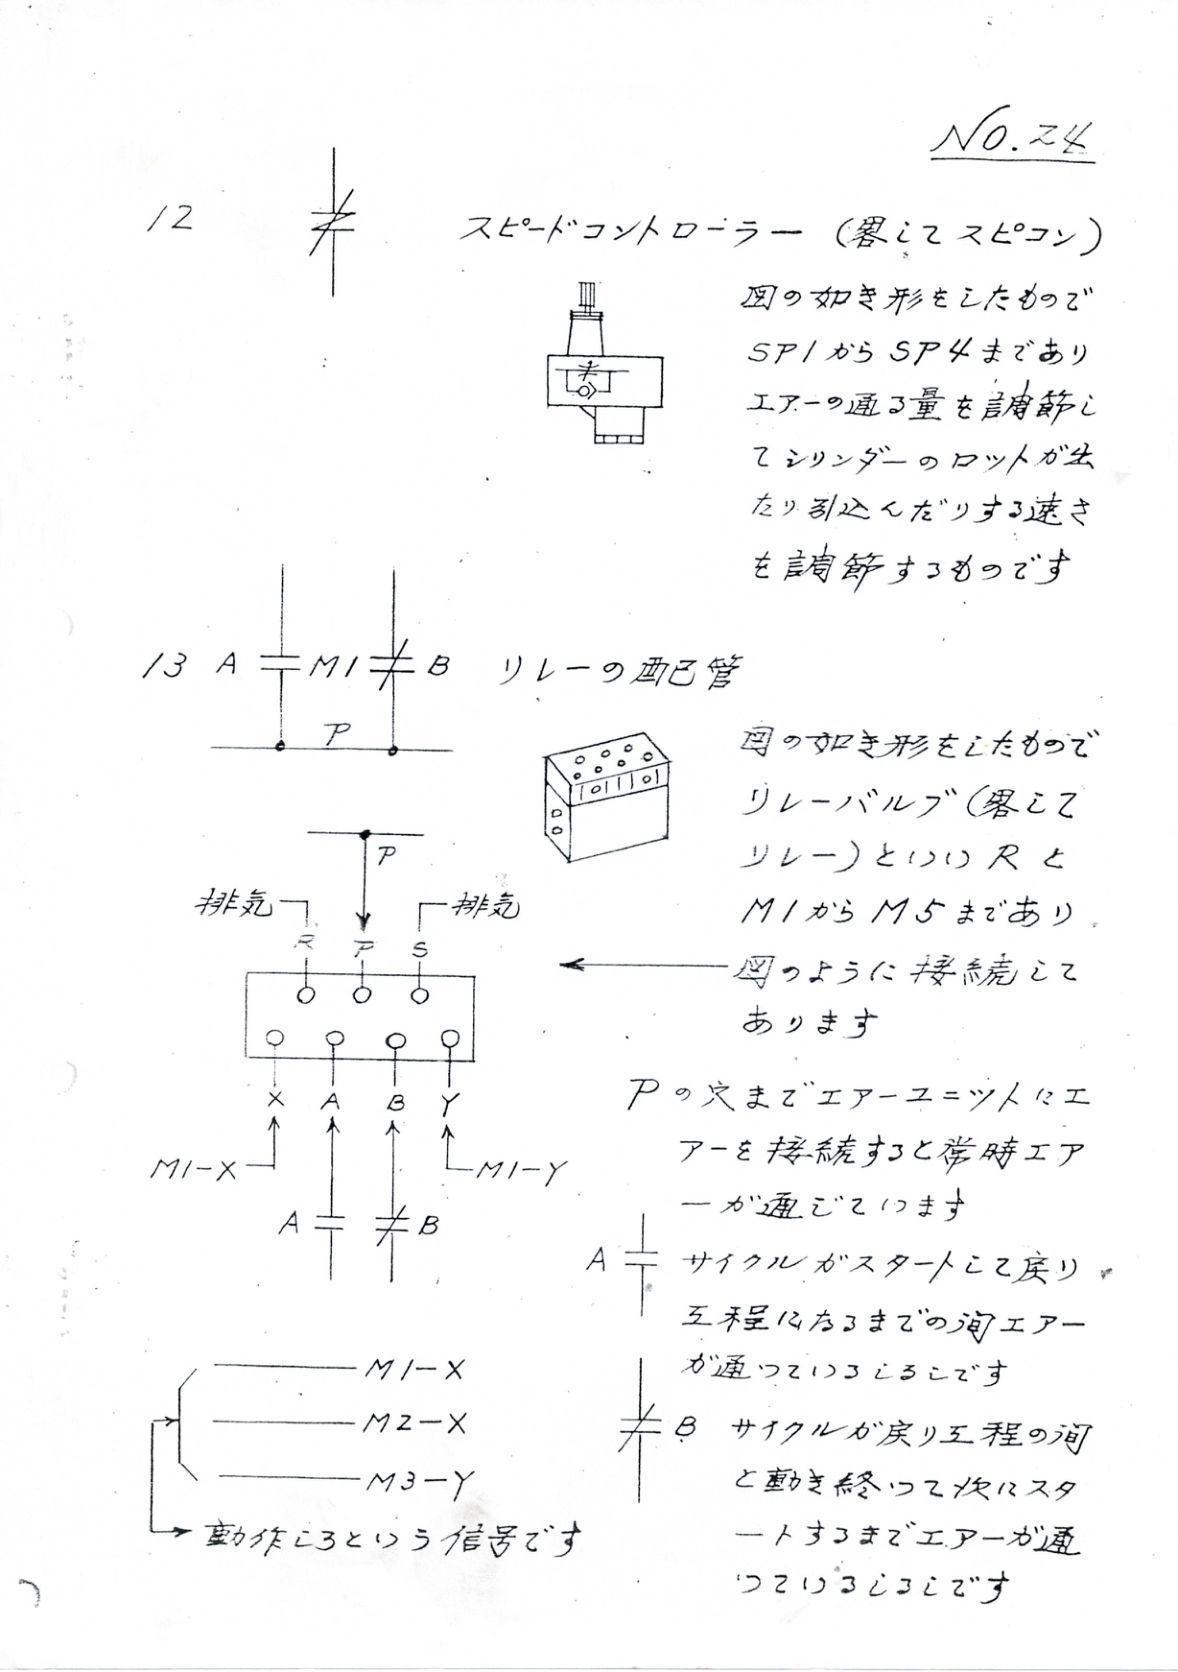 NO.24
12 スピードコントローラー (畧してスピコン)
図の如き形をしたもので
SP1からSP4まであり
エアーの通る量を調節し
てシリンダーのロットが出
たり引込んだりする速さ
を調節するものです
13 A M1 B リレーの配管
P
図の如き形をしたもので
リレーバルブ(畧して
リレー)といいRと
M1からM5まであり
図のように接続して
あります
P
排気 排気
R P S
X A B Y
M1-X M1-Y
A B
Pの穴までエアーユニットにエ
アーを接続すると常時エア
ーが通じています
A サイクルがスタートして戻り
工程になるまでの間エアー
が通っているしるしです
B サイクルが戻り工程の間
と動き終って次にスタ
ートするまでエアーが通
っているしるしです
M1-X
M2-X
M3-Y
動作しろという信号です